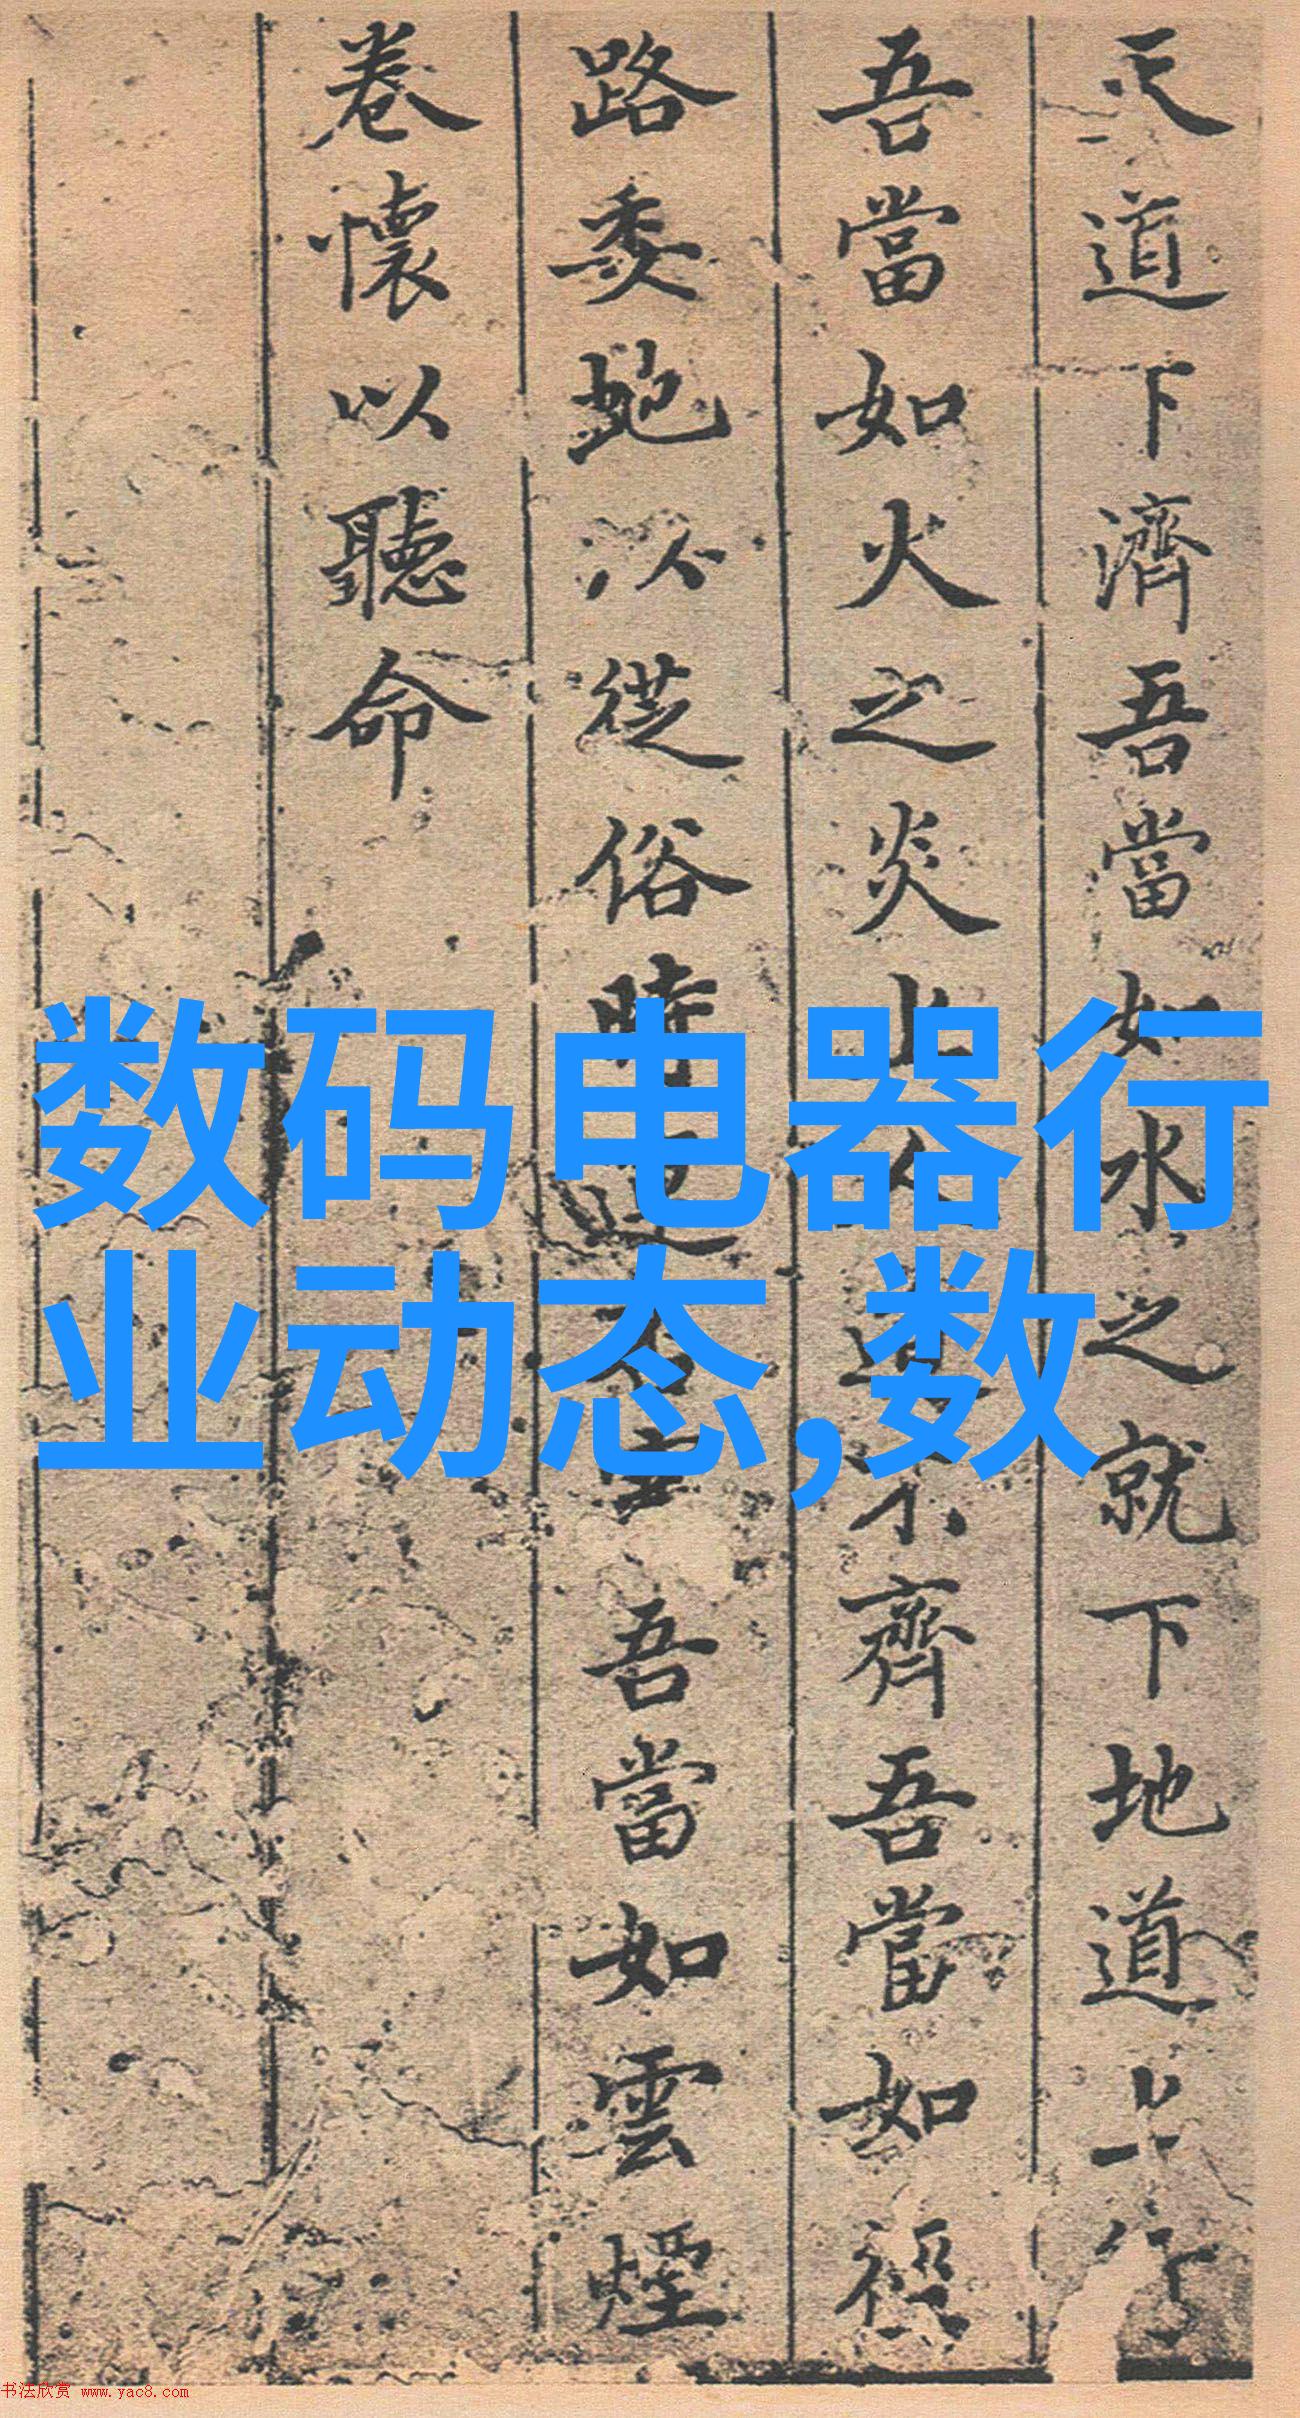 天道下濟吾當如水之就下地道上行
吾當如火之炎上人道不齊吾當如
路委蛇以從俗時之不幸吾當如雲煙
卷懷以聽命
数码电器行
业动态,数
书法欣赏 www.yac8.com